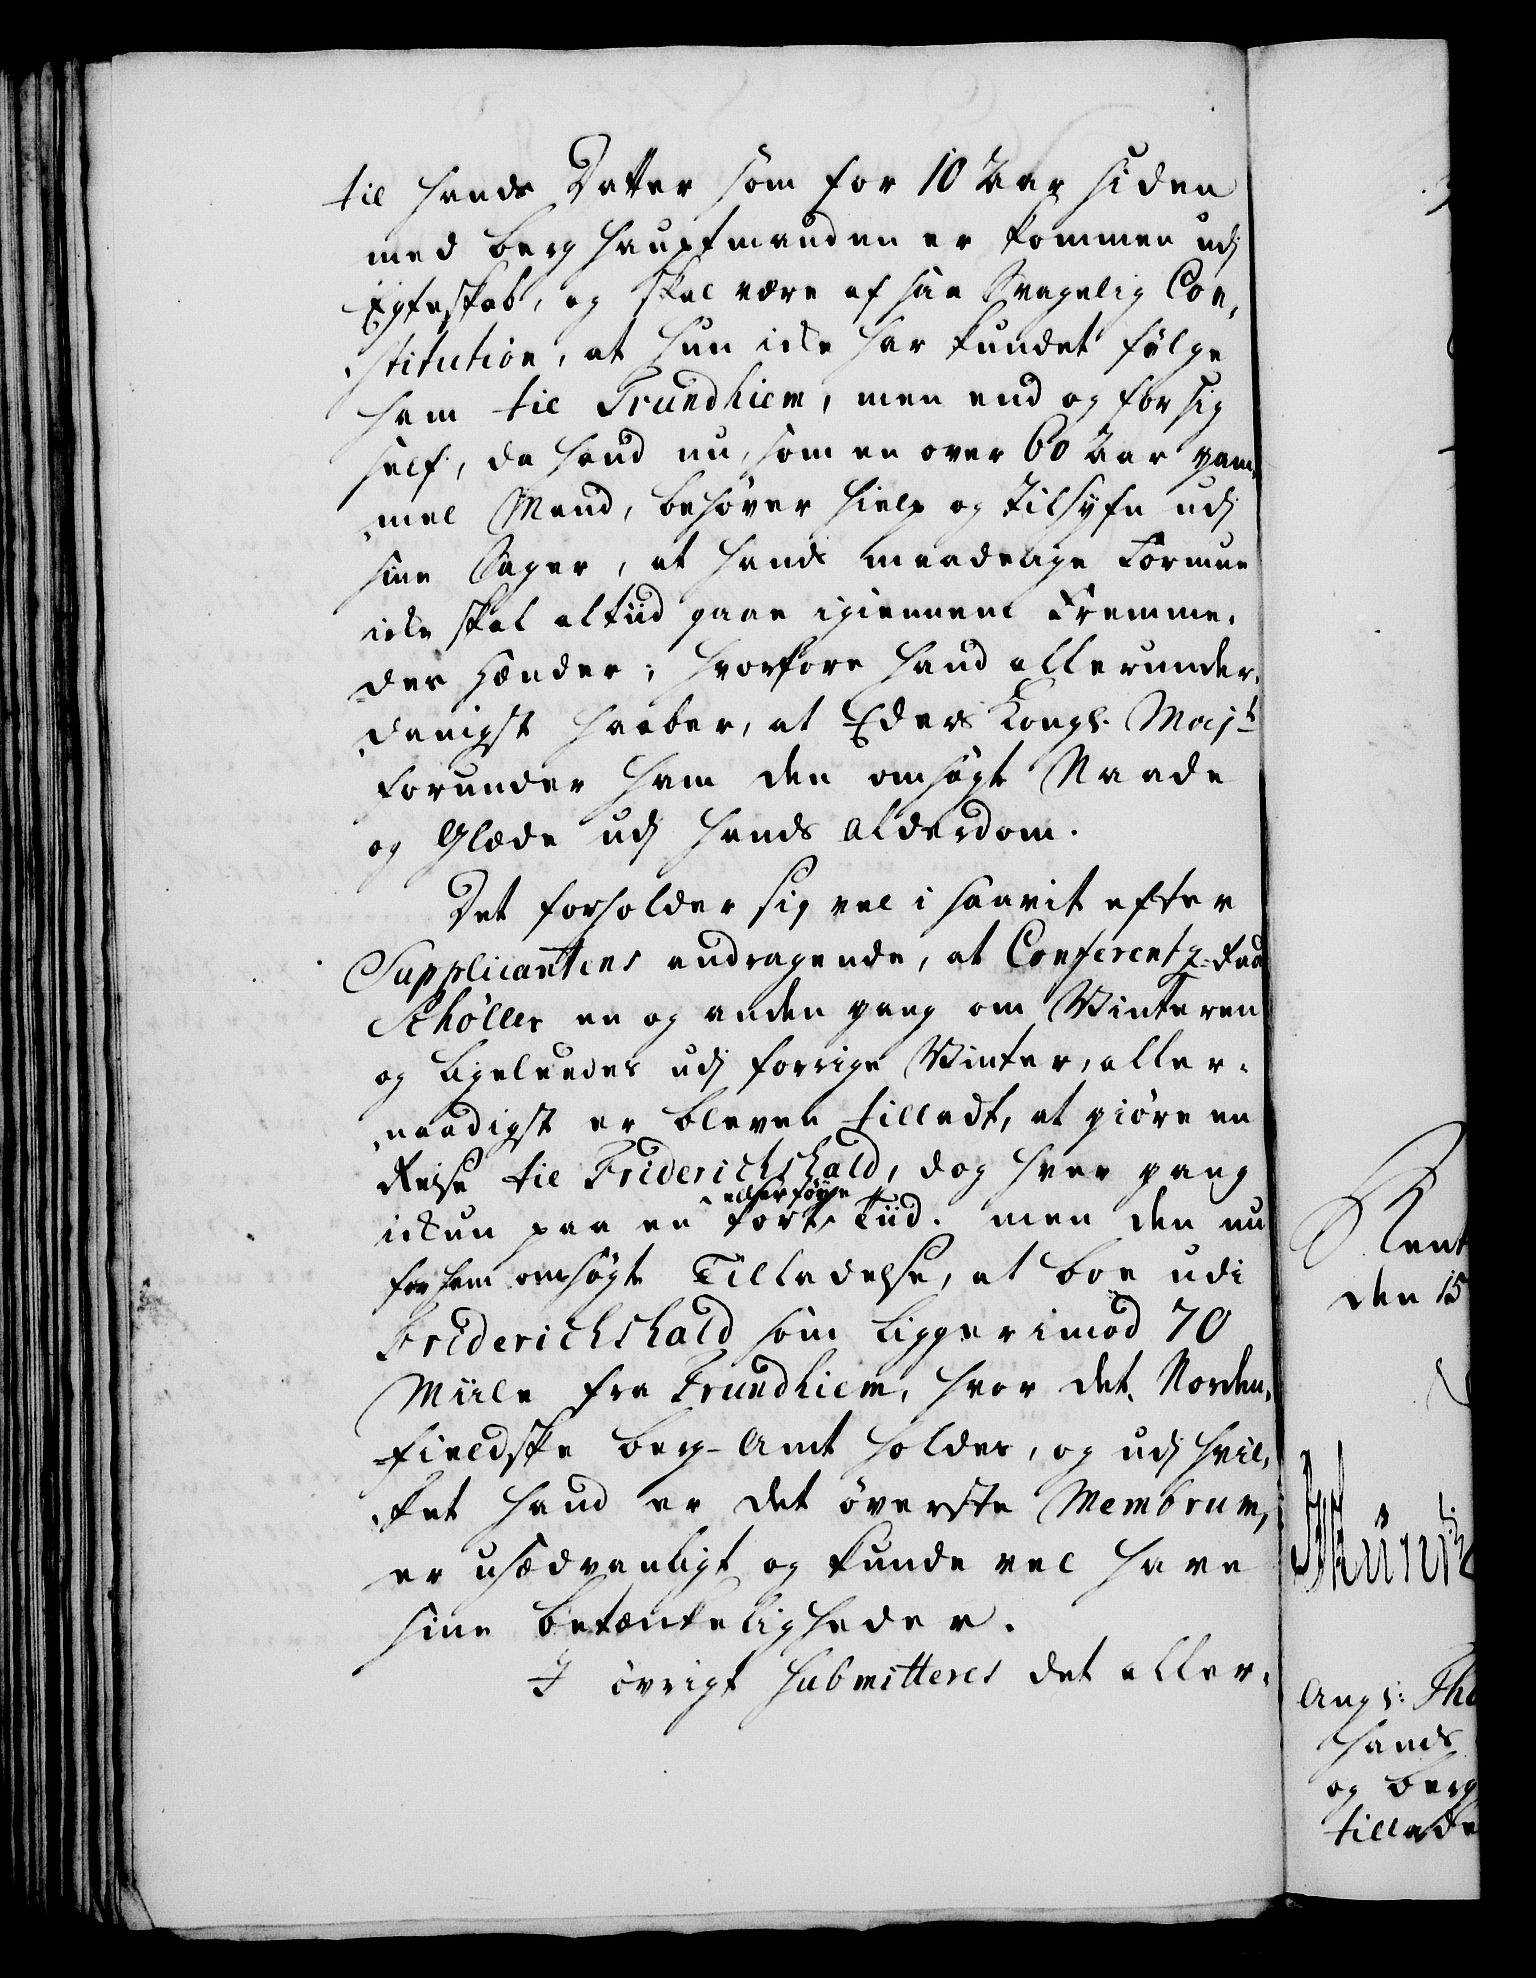 til hands Datter som for 10 Aar siden
med Berg Hauptmanden er kommen udj
Egteskab, og skal være af saa Svagelig Con-
stitution, at hun icke har kundet følge
ham til Trundhiem, men end og for sig
self, da hand nu, som en over 60 Aar gam-
mel Mand, behøver hielp og Tilsyn udj
sine Sager, at hands maadelige Formue
icke skal altiid gaae igiennem Fremme-
des Hænder; hvorfore hand allerunder-
danigst haaber, at Eders Kongl. Majt
forunder ham den omsøgte Naade
og Glæde udj hands Alderdom.
Det forholder sig vel i saavit efter
Supplicantens andragende, at Conferentz-Raad
Schøller en og anden gang om Winteren
og ligeleedes udj forrige Winter, aller-
naadigst er bleven tilladt, at giøre en
Reise til Friderichshald, dog hver gang
ickun paa en
kort Tiid. men den nu
for ham omsøgte Tilladelse, at boe udi
Friderichshald som ligger imod 70
Miile fra Trundhiem, hvor det Norden-
fieldske Berg-Amt holdes, og udj hvil-
ket hand er det øverste Membrum,
er usædvanligt og kunde vel have
sine Betænkeligheder.
I øvrigt submitteres det aller-
Rent
den 15
Ang: Tho
hands
og Berg
tillade